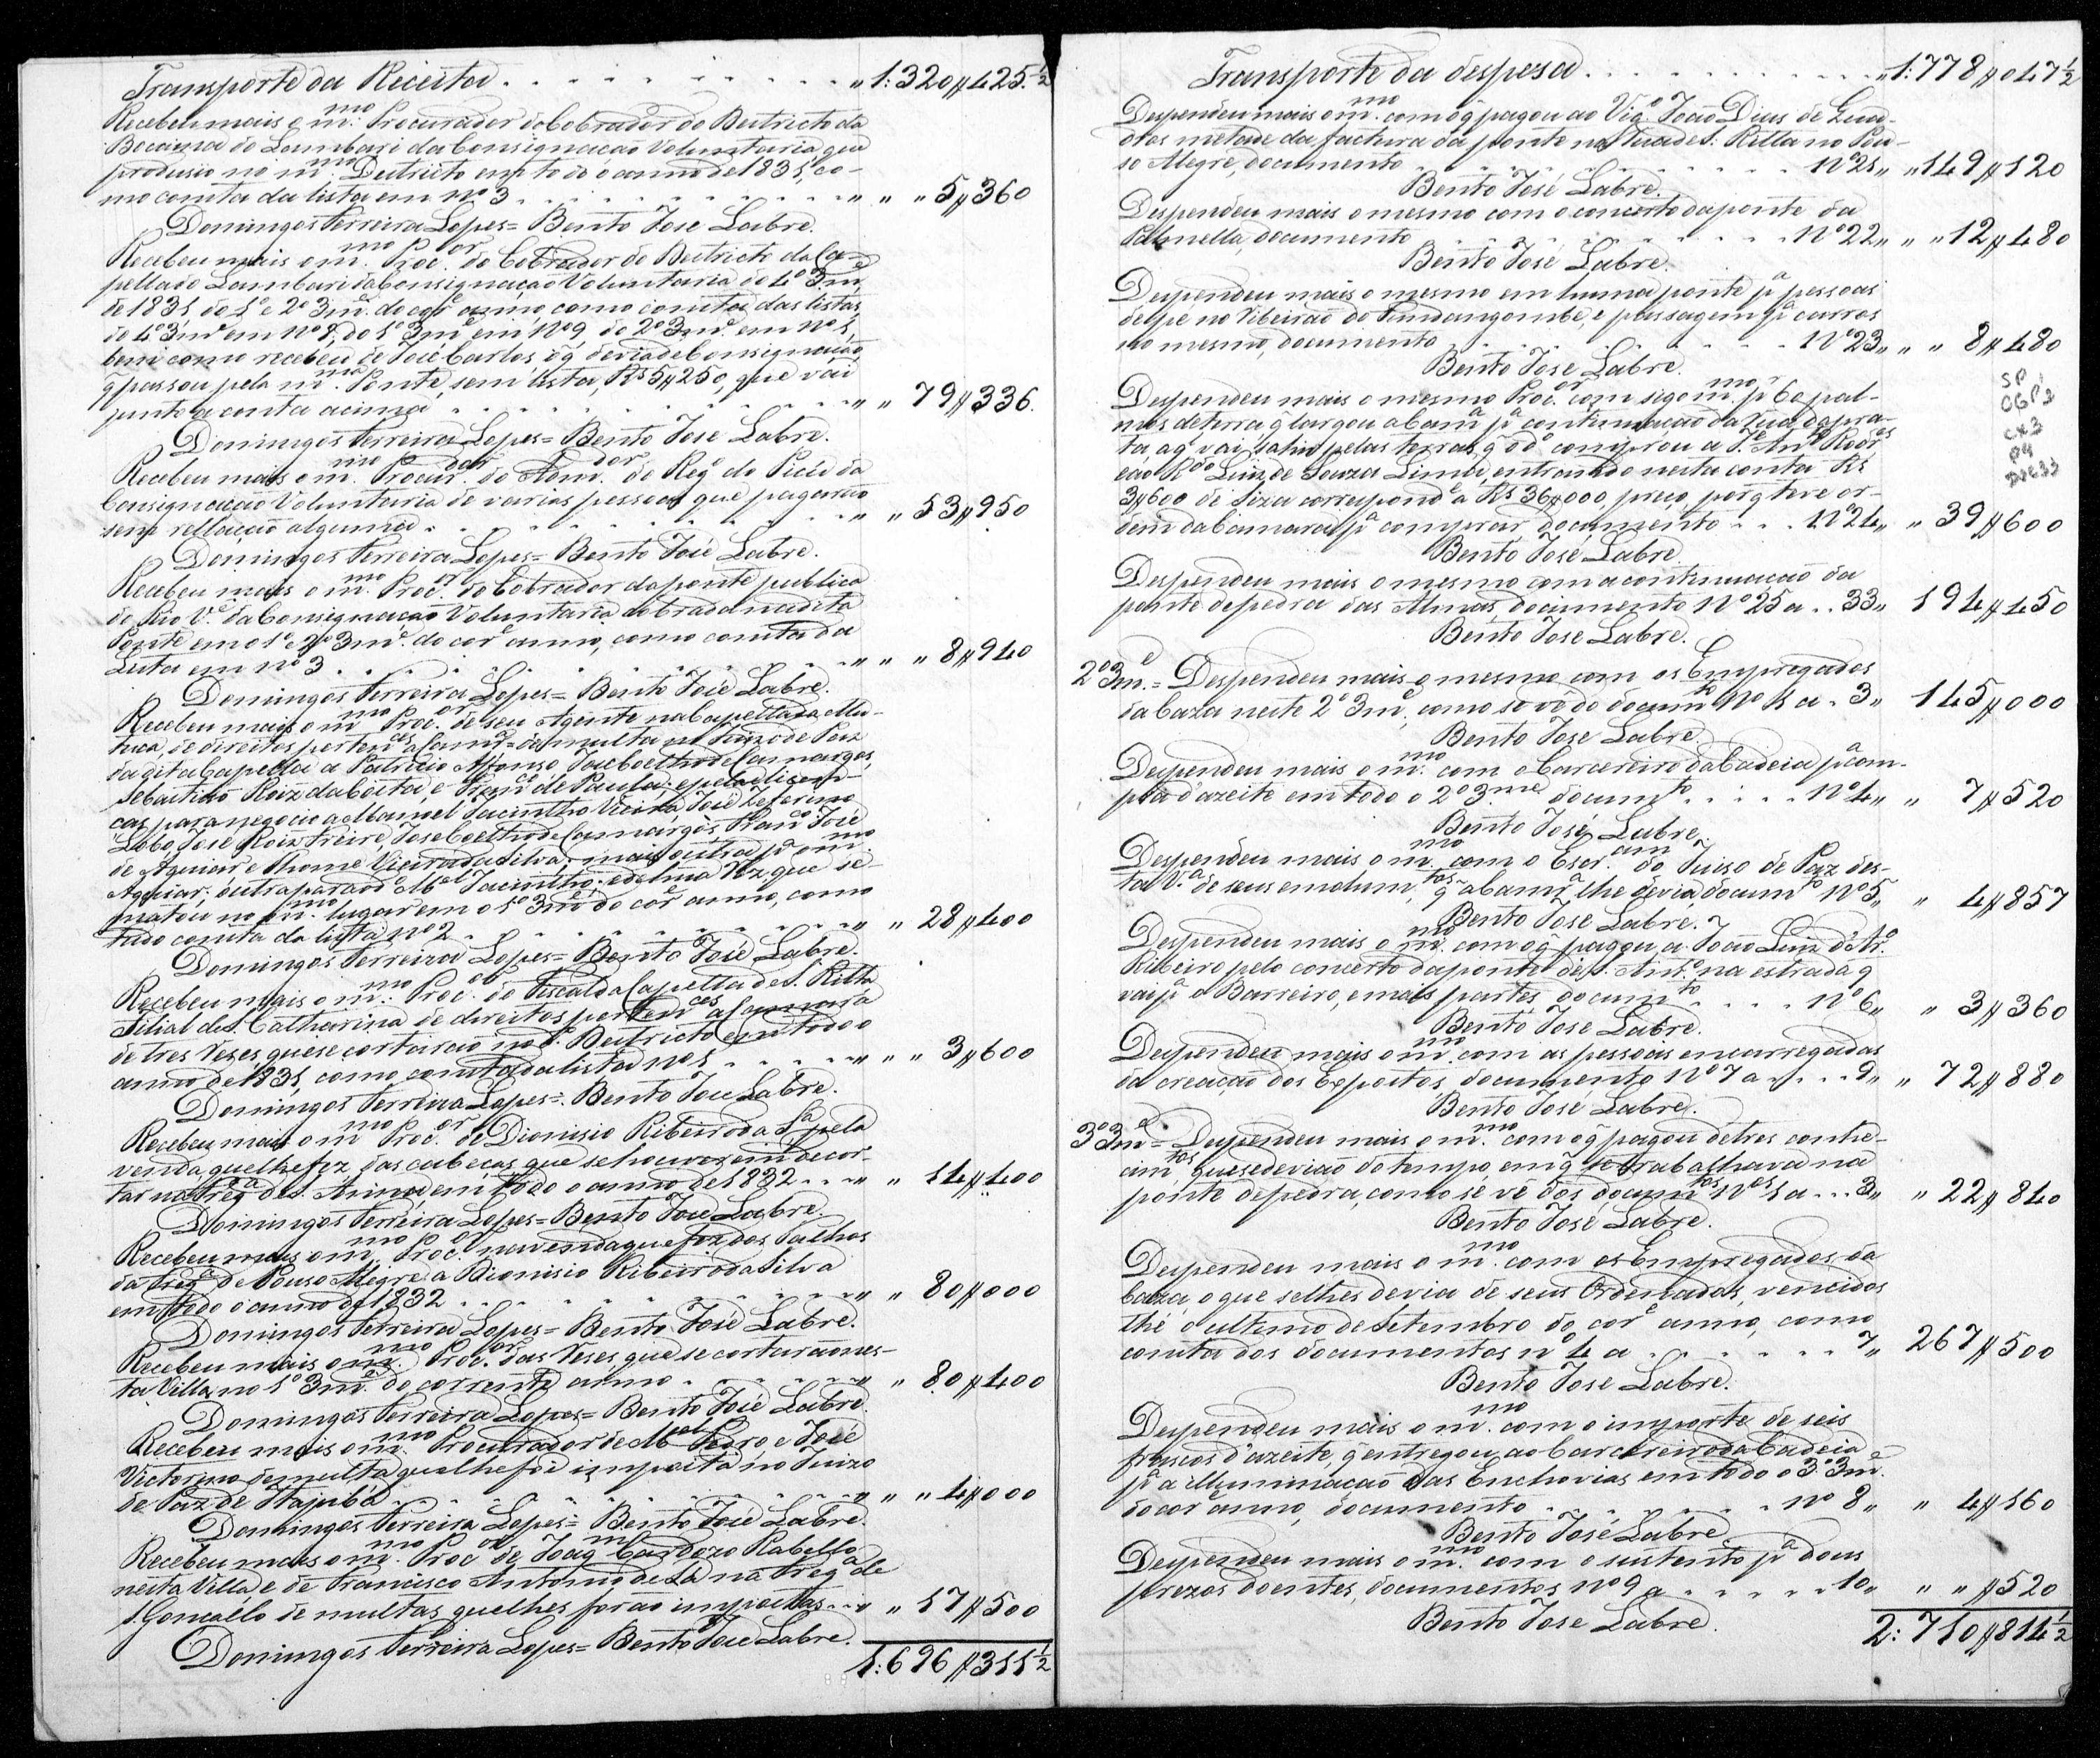 Transporte da Receita . . . . . . . . . . . " 1:320$425 ½
Recebeu mais o m.mo Procurador do Cobrador do Destricto da
Bocaina do Lambari da Consignação Voluntaria que
produsio no m.mo Destricto em todo o anno de 1831, co-
mo consta da lista em nº 3 . . . . . . . . . . " " " 5$360
Domingos Ferreira Lopes = Bento Jose Labre.
Recebeu mais o m.mo Proc.or do Cobrador do Destricto da Ca-
pella do Lambari da Consignação Voluntaria do 4º 3m.e
de 1831 do 1º e 2º 3m.e do cor.e anno, como consta das listas,
do 4º 3m.e em nº 8, do 1º 3m.e em nº 9, do 2º 3m.e em nº 1,
bem como recebeu de José Carlos, o q̃ devia de Consignação
q̃ passou pela m.ma Ponte, sem lista, Rs 5$250, que vai
junto a conta acima . . . . . . . . . . " " 79$336.
Domingos Ferreira Lopes = Bento Jose Labre.
Recebeu mais o m.mo Procur.dor do Adm.dor do Reg.º do Picú da
Consignação Voluntaria de varias pessoas que pagarão
sem rellacão alguma . . . . . . . . . . " " 53$950
Domingos Ferreira Lopes = Bento José Labre.
Recebeu mais o m.mo Proc.or do Cobrador da ponte publica
do Rio V.e da Consignação Voluntaria cobrada na dita
Ponte em o 1º e 2º 3m.e do cor.e anno, como consta da
Lista em nº 3 . . . . . . . . . . " " " 8$940
Domingos Ferreira Lopes = Bento José Labre.
Recebeu mais o m.mo Proc.or de seu Agente na Capella da Mu-
tuca, de direitos perten.ces a Cam.ra = de multa no Juizo de Paz
da dita Capella a Patricio Afonso, José Coelho de Camargos,
Sebastião Roiz da Costa, e Fran.co de Paula; e pelas licen-
cas para negocio a Manoel Jacintho Vieira, José Zeferino
Lobo, José Roiz Freire, Jose Coelho de Camargos, Fran.co José
de Aguiar, e Thome Vieira da Silva; mais outra p.a o m.mo
Aguiar; outra para o d.º M.el Jacintho; e de huma Rez, que se
matou no m.mo lugar em o 1º 3m.e do cor.e anno, como
tudo consta da lista nº 2 . . . . . . . . . . " " 28$400
Domingos Ferreira Lopes = Bento José Labre.
Recebeu mais o m.mo Proc.or do Fiscal da Capella de S. Ritta
Filial de S. Catharina de direitos perten.ces a Camara
de tres Reses, que se cortarão no d.º Destricto em todo o
anno de 1831, como consta da lista nº 1 . . . . . " " " 3$600
Domingos Ferreira Lopes = Bento Jose Labre.
Recebeu mais o m.mo Proc.or de Dionisio Ribeiro da S.a pela
venda, que lhe fez das cabeças, que se houverem de cor-
tar na Freg.a de S. Anna em todo o anno de 1832 . . . " " 14$400
Domingos Ferreira Lopes = Bento José Labre.
Recebeu mais o m.mo Proc.or na venda que fez dos Talhos
da Freg.a de Pouso Alegre a Dionisio Ribeiro da Silva
em todo o anno de 1832 . . . . . . . . . . " " 80$000
Domingos Ferreira Lopes = Bento José Labre.
Recebeu mais o m.mo Proc.or das Reses, que se cortarão nes-
ta Villa, no 1º 3m.e do corrente anno . . . . . . " " 80$400
Domingos Ferreira Lopes = Bento José Labre.
Recebeu mais o m.mo Procurador de M.el Pedro, e José
Victorino de multa que lhe foi imposta no Juizo
de Paz de Itajubá . . . . . . . . . . " " " 4$000
Domingos Ferreira Lopes = Bento José Labre.
Recebeu mais o m.mo Proc.or de Joaq.m Cardozo Rabello
nesta Villa, e de Francisco Antonio de Sá na Freg.a de
S. Goncallo de multas, que lhes forão impostas . . . " " 17$500
Domingos Ferreira Lopes = Bento Jose Labre.
1:696$311 ½
Transporte da despesa . . . . . . . . . . " 1:778$047 ½
Despendeu mais o m.mo com o q̃ pagou ao Vig.º João Dias de Qua-
dros metade da factura da ponte na Rua de S. Ritta no Pou-
so Alegre, documento . . . . . . . . . . Nº 21 " " 149$120
Bento José Labre.
Despendeu mais o mesmo com o concerto da ponte da
Palmella, documento . . . . . . . . . . Nº 22 " " " 12$480
Bento José Labre.
Despendeu mais o mesmo em huma ponte p.a pessoas
de pé no Ribeirão do , e passagem p.a carros
no mesmo, documento . . . . . . . . . . Nº 23 " " " 8$480
Bento Jose Labre.
SP 1
CGP 2
CX3
P4
DOC33
Despendeu mais o mesmo Proc.or com sigo m.mo p.r 60 pal-
mos de terra q̃ largou a Cam.a p.a continuacão da Rua da pra-
ta, a q̃ vai sahir pelas terras, q̃ o d.º comprou a J.e Ant.º Rodr.es
e ao R.do Luiz de Souza Lima, entrando nesta conta Rs
3$600 de Siza correspond.e a Rs 36$000, preço, porq̃ teve or-
dem da Camara p.a comprar, documento . . . Nº 24 " " 39$600
Bento José Labre
Despendeu mais o mesmo com a continuacão da
ponte de pedra das Almas, documento Nº 25 a . . 33 " 194$450
Bento Jose Labre.
2º 3m.e = Despendeu mais o mesmo com os Empregados
da Caza neste 2º 3m.e, como se vê do docum.to Nº 1 a . 3 " 145$000
Bento Jose Labre.
Despendeu mais o m.mo com o Carcereiro da Cadeia p.a com-
pra d'azeite em todo o 2º 3.me docum.to . . . . . Nº 4 " " 7$520
Bento José Labre.
Despendeu mais o m.mo com o Escr.am do Juiso de Paz des-
ta V.a de seus emolum.tos, q̃ a Cam.ra lhe devia, docum.to Nº 5 " " 4$857
Bento Jose Labre.
Despendeu mais o m.mo com o q̃ pagou a João Luiz
Ribeiro pelo concerto da ponte de S. Ant.º na estrada q̃
vai p.a o Barreiro, e mais partes, docum.to . . . . Nº 6 " " 3$360
Bento Jose Labre.
Despendeu mais o m.mo com as pessoas encarregadas
da creação dos Expostos, documento Nº 7 a . . . . 9 " " 72$880
Bento José Labre.
3º 3m.e = Despendeu mais o m.mo com o q̃ pagou de tres conhe-
cim.tos, que se devião do tempo, em q̃ se trabalhava na
ponte de pedra, como se vê dos docum.tos N.os 1 a . . . 3 " " 22$840
Bento José Labre.
Despendeu mais o m.mo com os Empregados da
Caza, o que se lhes devia de seus Ordenados, vencidos
thé o ultimo de Setembro do cor.e anno, como
consta dos documentos nº 4 a . . . . . . . . 7 " 267$500
Bento Jose Labre.
Despendeu mais o m.mo com o importe de seis
frascos d'azeite, q̃ entregou ao Carcereiro da Cadeia
p.a a illuminacão das Enchovias em todo o 3º 3m.e
do cor.e anno, documento . . . . . . . . nº 8 " " 4$160
Bento José Labre
Despendeu mais o m.mo com o sustento p.a dous
prezos doentes, documentos nº 9 a . . . . . 10 " " " $520
Bento Jose Labre.
2:710$814 ½